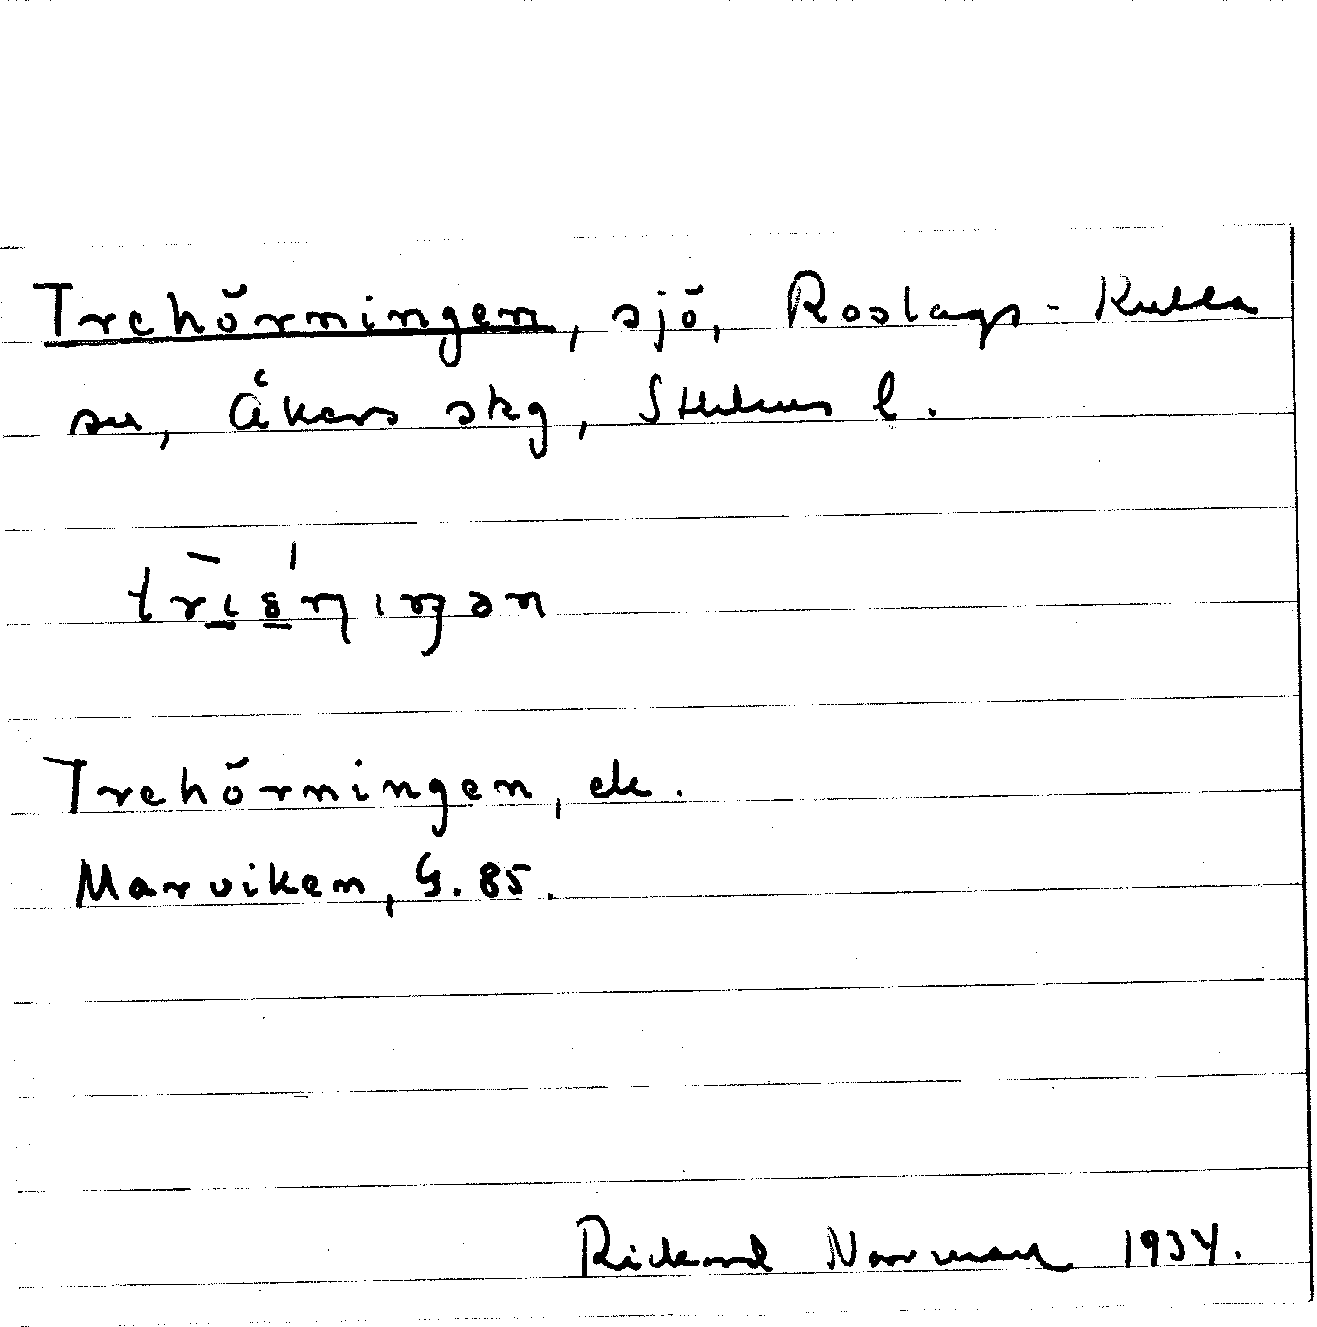 Trehörningen, sjö, Roslags-Kulla
sn, Åkers skg, Sthlms l.
Trehörningen, ek.
Marviken, G. 85.
Rickard Norman 1934.